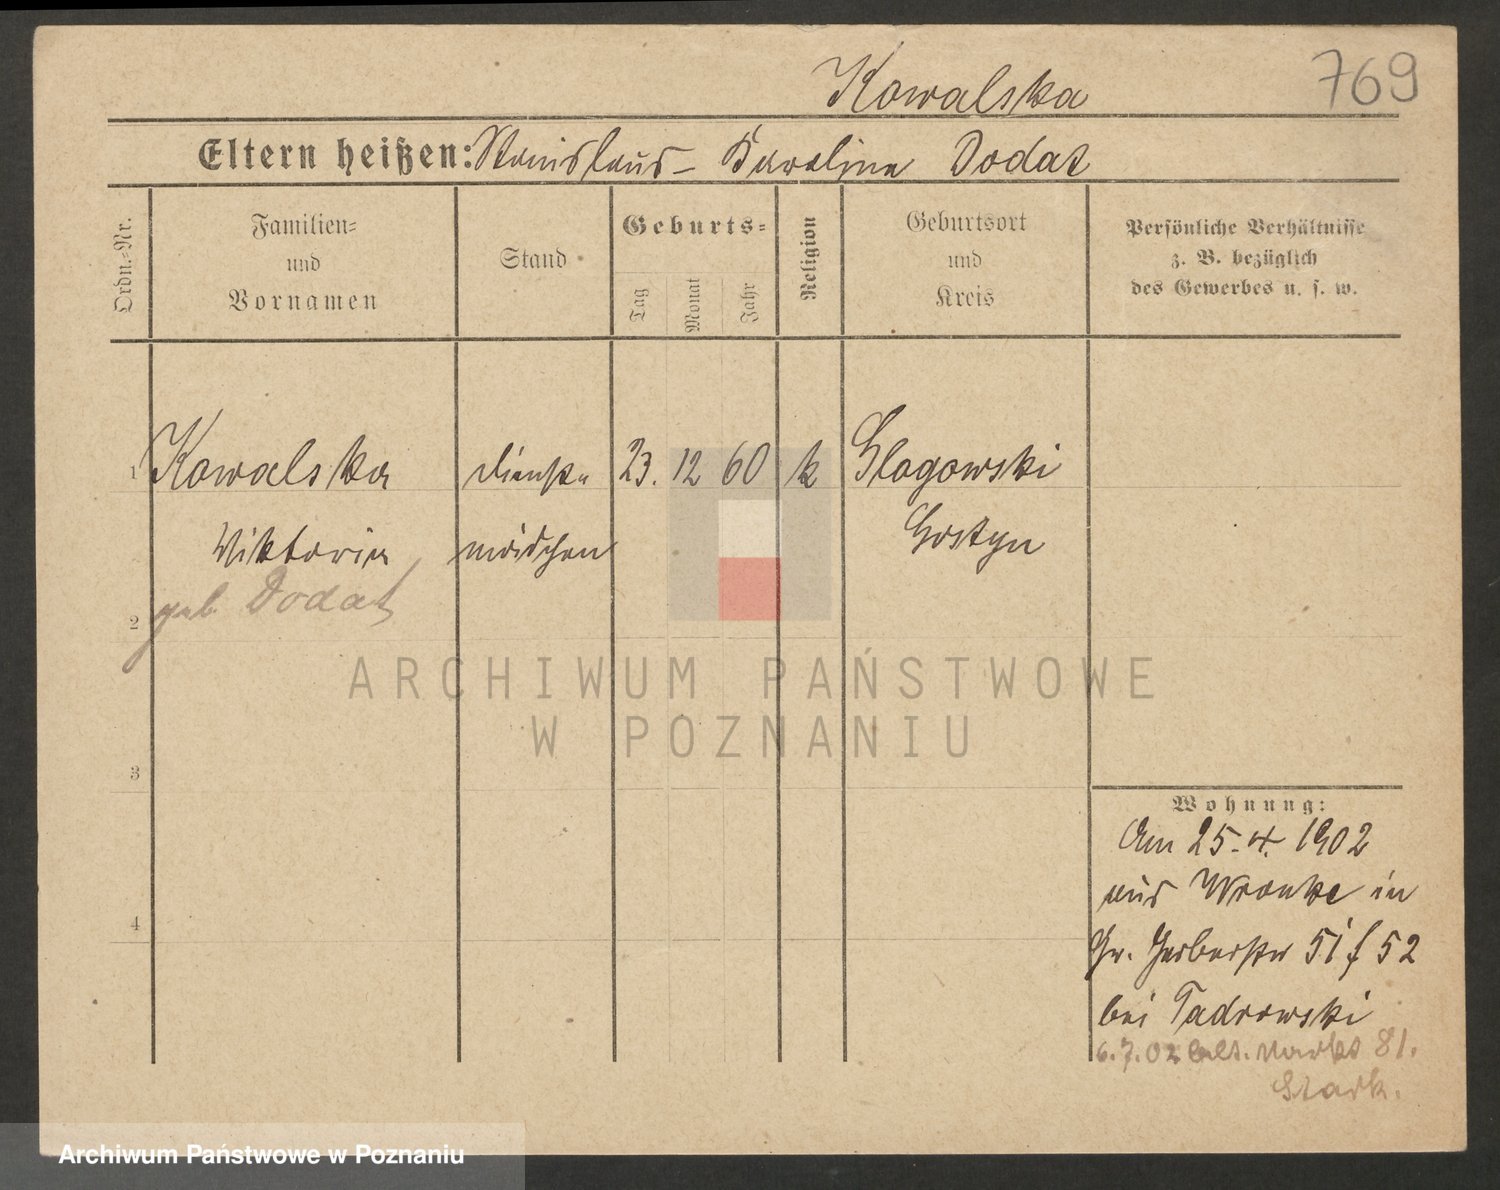 Kowalska 769
Eltern heißen: Stanislaus – Karolina Dodat
Ordn.=Nr.
Familien=
und
Vornamen
Stand
Geburts=
Tag
Monat
Jahr
Religion
Geburtsort
und
Kreis
Persönliche Verhältnisse
z. B. bezüglich
des Gewerbes u. s. w.
1 Kowalska Dienst 23. 12 60 k Glogowski
Viktoria mädchen Gostyn
geb. Dodat
2
3
4
Wohnung:
Am 25.4. 1902
aus Wronke in
Gr. Gerberstr 51/52
bei Tadrowski
6.7.02 Alt. Markt 81.
Stark.
ARCHIWUM PAŃSTWOWE
W POZNANIU
Archiwum Państwowe w Poznaniu